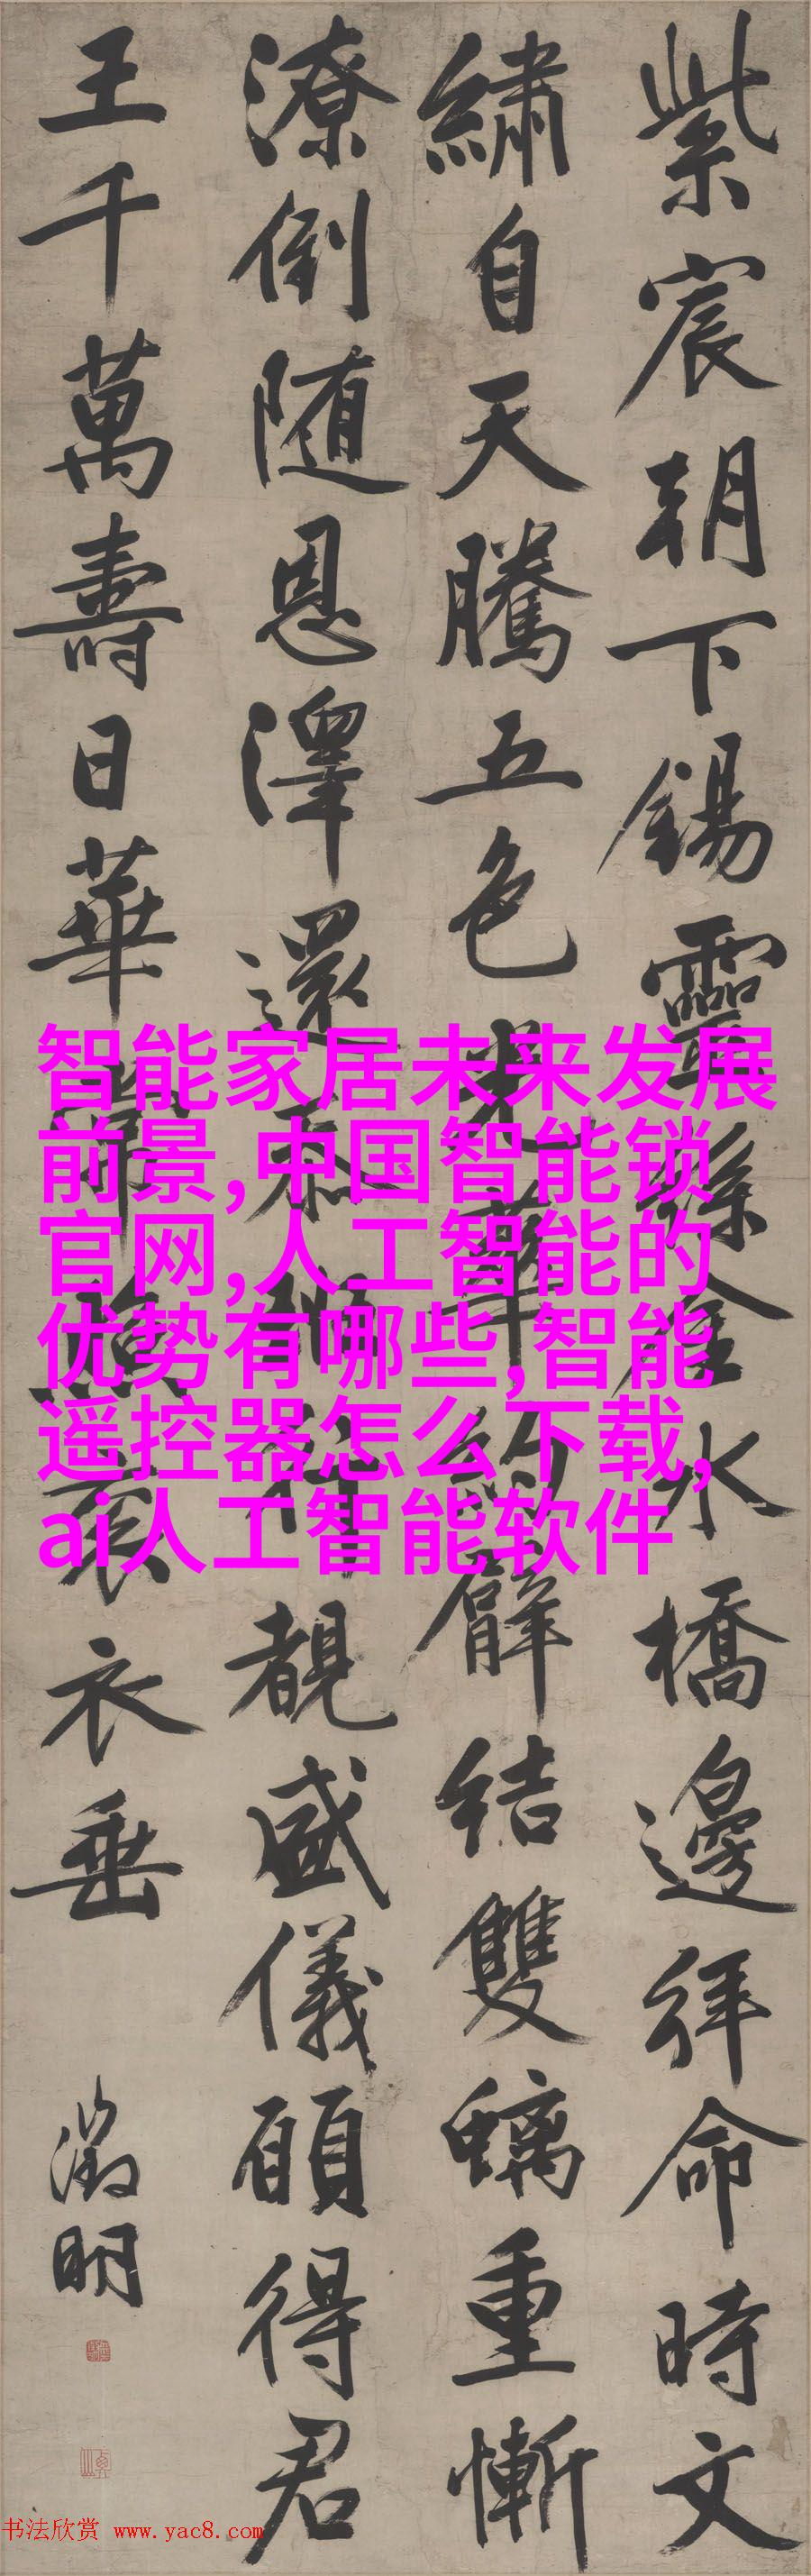 紫宸朝下錫靈絲金水橋邊拜命時文
繡自天騰五色光華約臂結雙螭重慚
潦倒隨恩澤還忝班行覩盛儀願得君
王千萬壽日華常照袞衣垂
徵明
智能家居未来发展
前景,中国智能锁
官网,人工智能的
优势有哪些,智能
遥控器怎么下载,
ai人工智能软件
书法欣赏 www.yac8.com